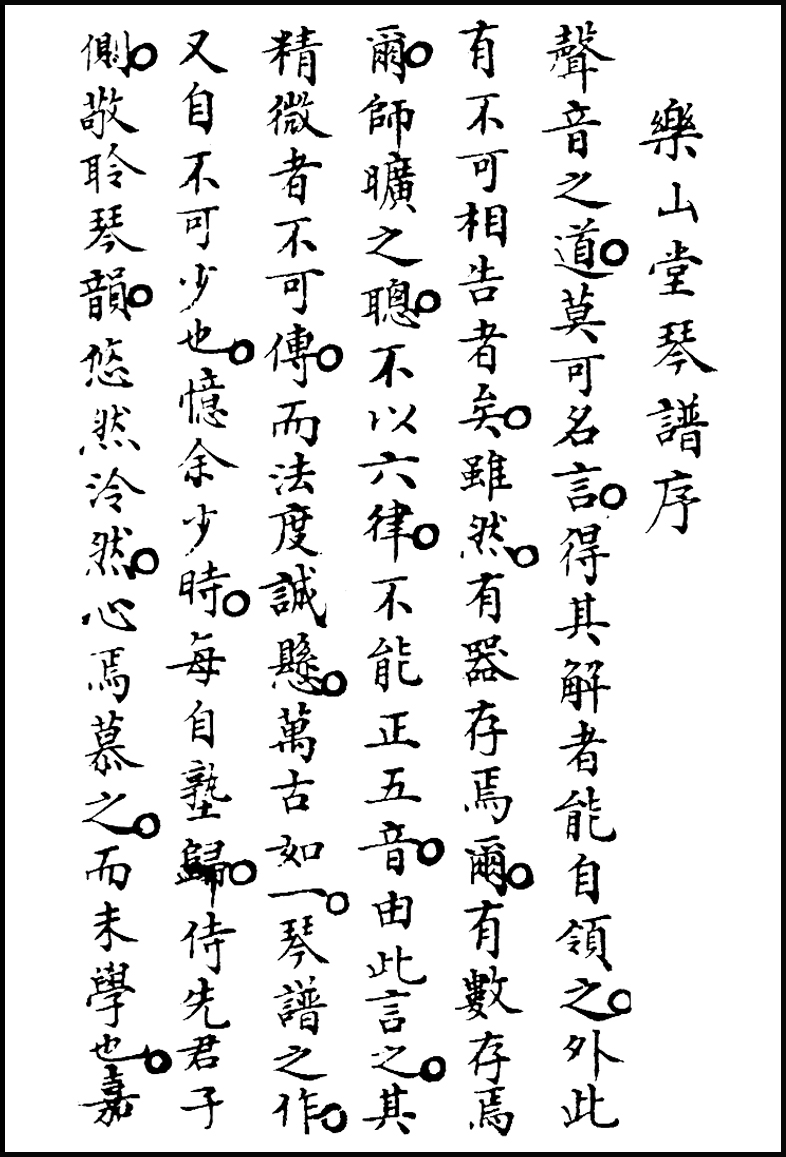 樂山堂琴譜序
聲音之道○莫可名言○得其解者能自領之○外此
有不可相告者矣○雖然○有器存焉爾○有數存焉
爾○師曠之聰○不以六律○不能正五音○由此言之○其
精微者不可傳○而法度誠懸○萬古如一○琴譜之作○
又自不可少也○憶余少時○每自塾歸○侍先君子
側○敬聆琴韻○悠然泠然○心焉慕之○而未學也○嘉